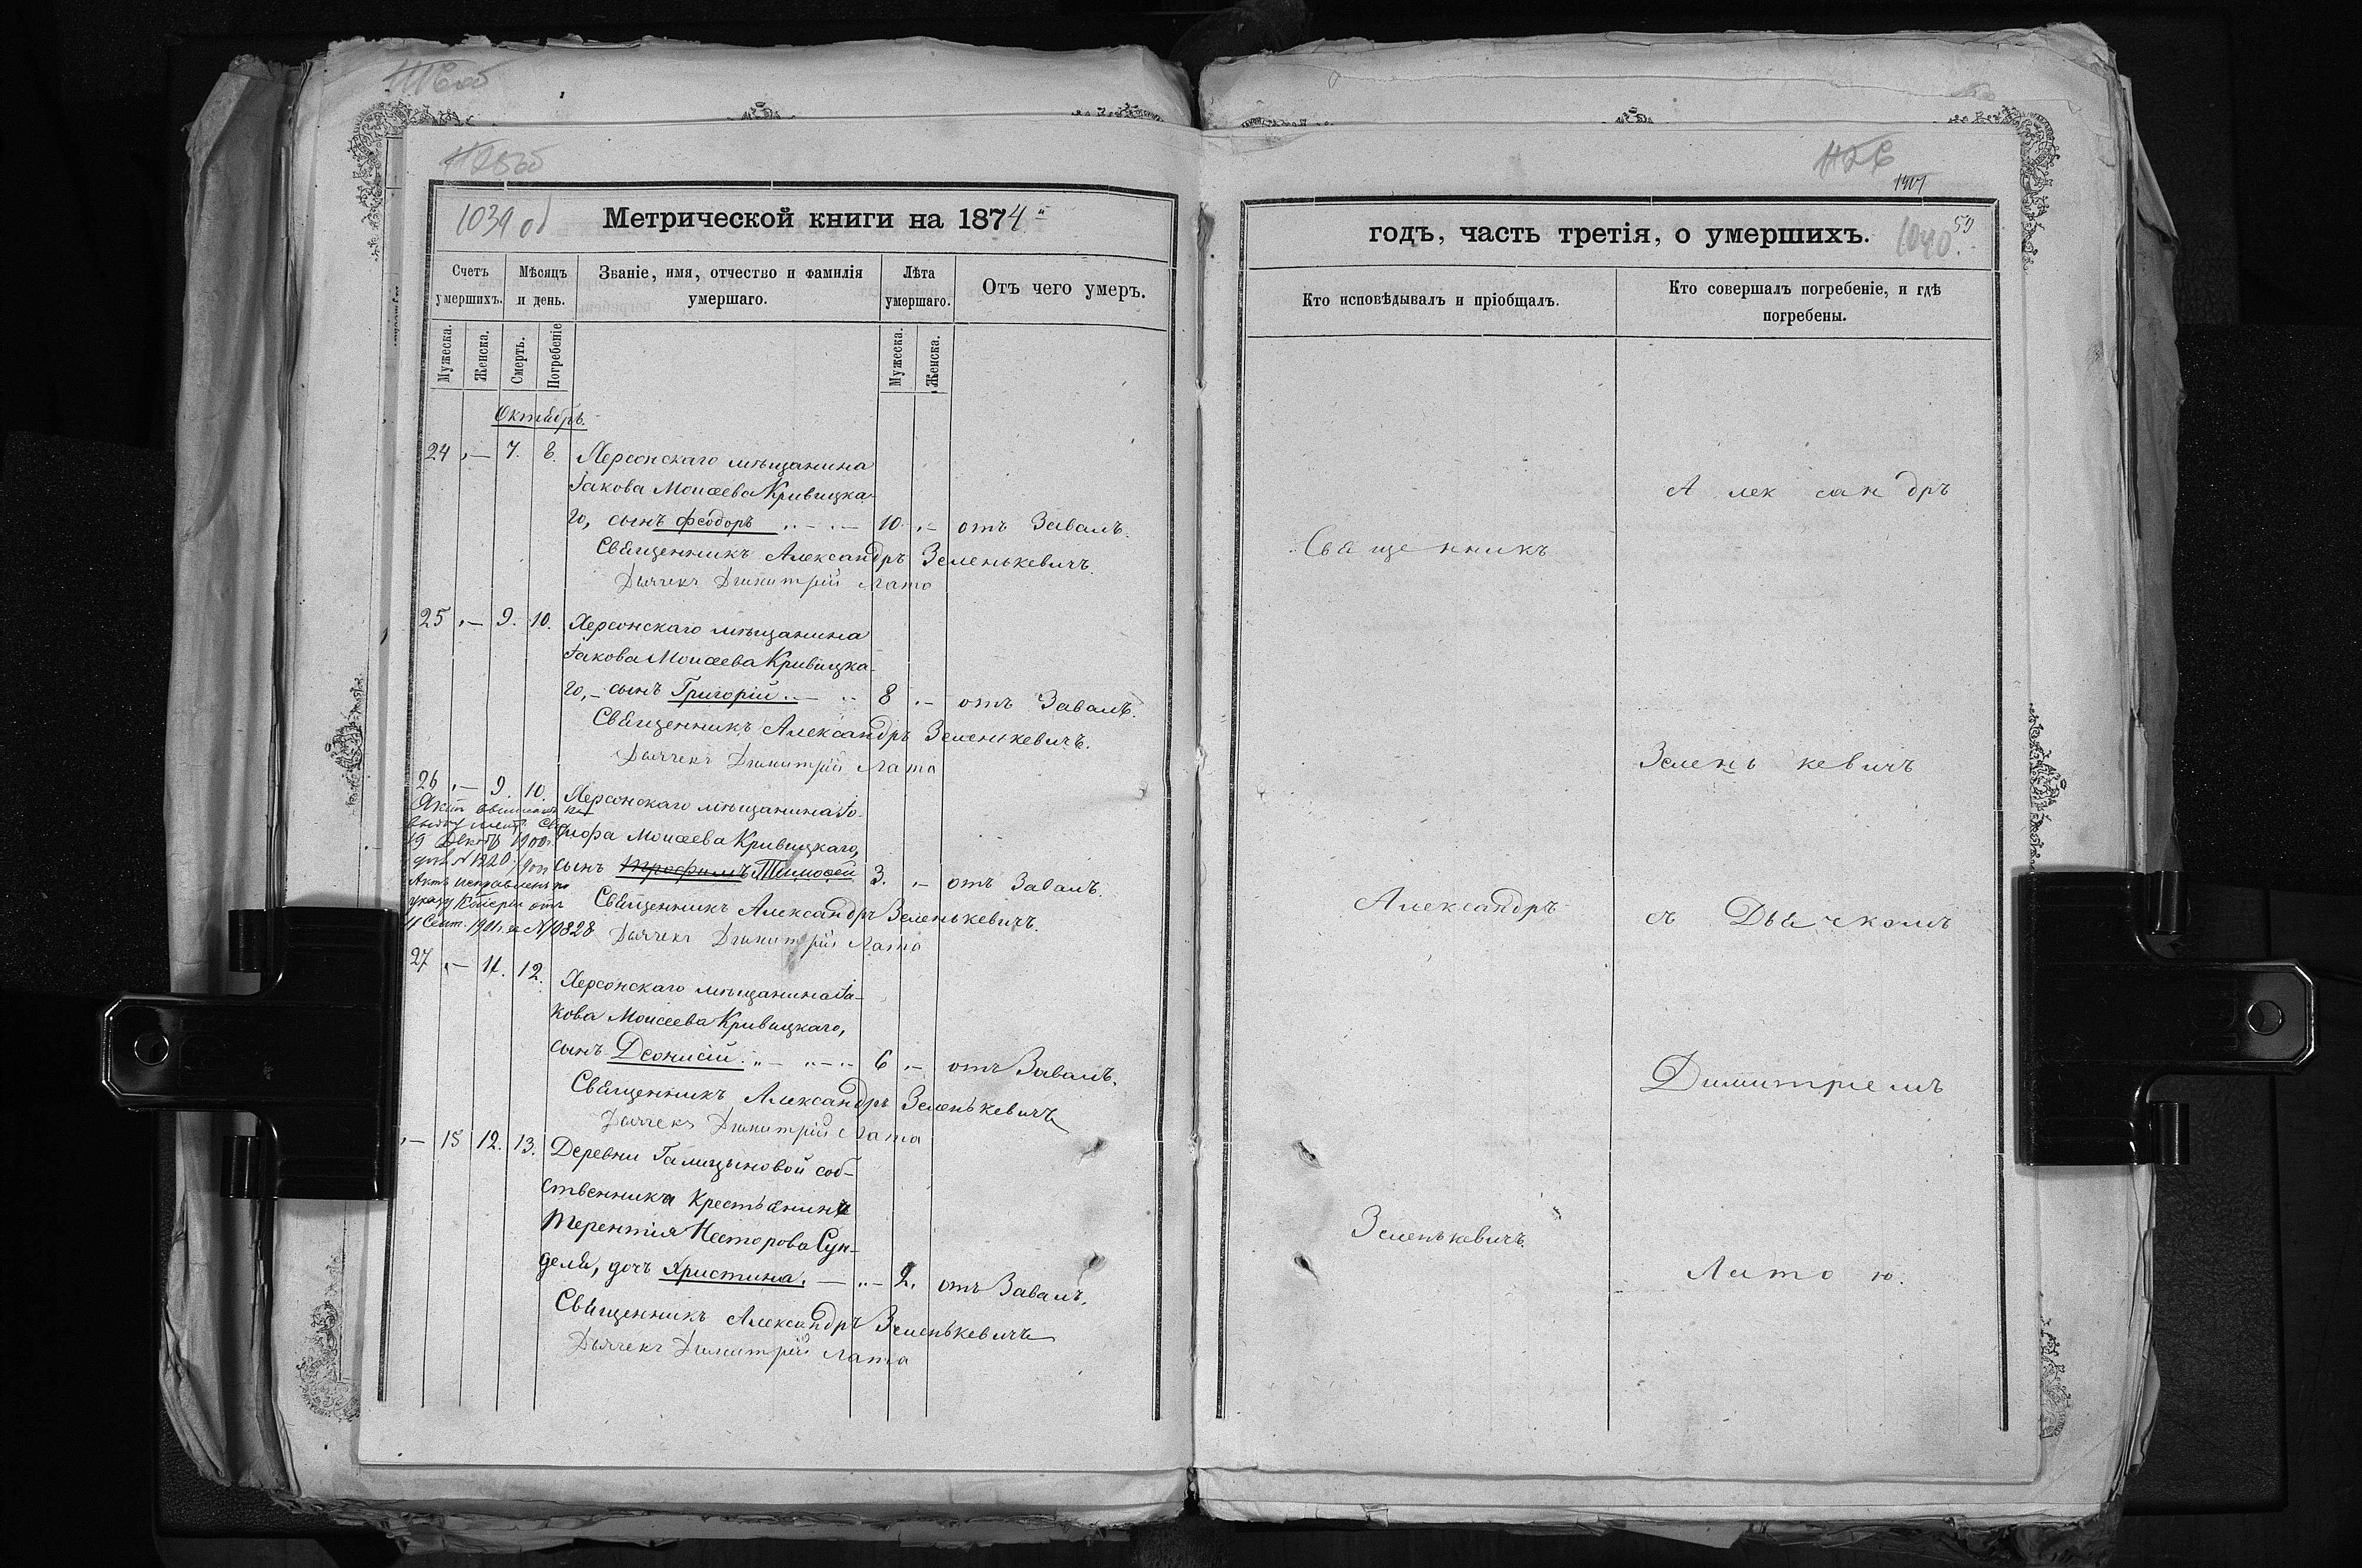 1039 об
Метрической книги на 1874
Счетъ умершихъ.
Мѣсяцъ и день.
Званіе, имя, отчество и фамилія умершаго.
Лѣта умершаго.
Отъ чего умеръ.
Мужеска.
Женска.
Смерть.
Погребеніе
Мужеска.
Женска.
Октябрь.
24 „— 7. 8. Херсонскаго мѣщанина
Іакова Моисеева Кривицка-
го, сынъ Феодоръ 10 „— отъ Завалъ.
Священникъ Александръ Зеленькевичъ.
Дьячекъ Димитрій Лата
25 „— 9. 10. Херсонскаго мѣщанина
Іакова Моисеева Кривицка-
го, — сынъ Григорій 8 „— отъ Завалъ.
Священникъ Александръ Зеленькевичъ.
Дьячекъ Димитрій Лата
26 „— 9. 10. Херсонскаго мѣщанина Іо-
сифа Моисеева Кривицкаго,
сынъ Трофимъ Тимофей 3. „— отъ Завалъ.
Священникъ Александръ Зеленькевичъ.
Дьячекъ Димитрій Лата
19 Декаб 1900
Актъ исправленъ по
указу Консеріи отъ
11 Сент. 1901 г. за № 10828
27 „— 11. 12. Херсонскаго мѣщанина Іа-
кова Моисеева Кривицкаго,
сынъ Деонисій 6 „— отъ Завалъ.
Священникъ Александръ Зеленькевичъ
Дьячекъ Димитрій Лата
„— 15 12. 13. Деревни Галицыновой соб-
ственника крестьянина
Терентія Несторова Сун-
деля, дочь Христина. — „— 2. отъ Завалъ.
Священникъ Александръ Зеленькевичъ
Дьячекъ Димитрій Лата
1401
годъ, часть третія, о умершихъ.
1040
59
Кто исповѣдывалъ и пріобщалъ.
Кто совершалъ погребеніе, и гдѣ погребены.
Александръ
Священникъ
Зеленькевичъ
Александръ
съ Дьячкомъ
Димитріемъ
Зеленькевичъ.
Латою.